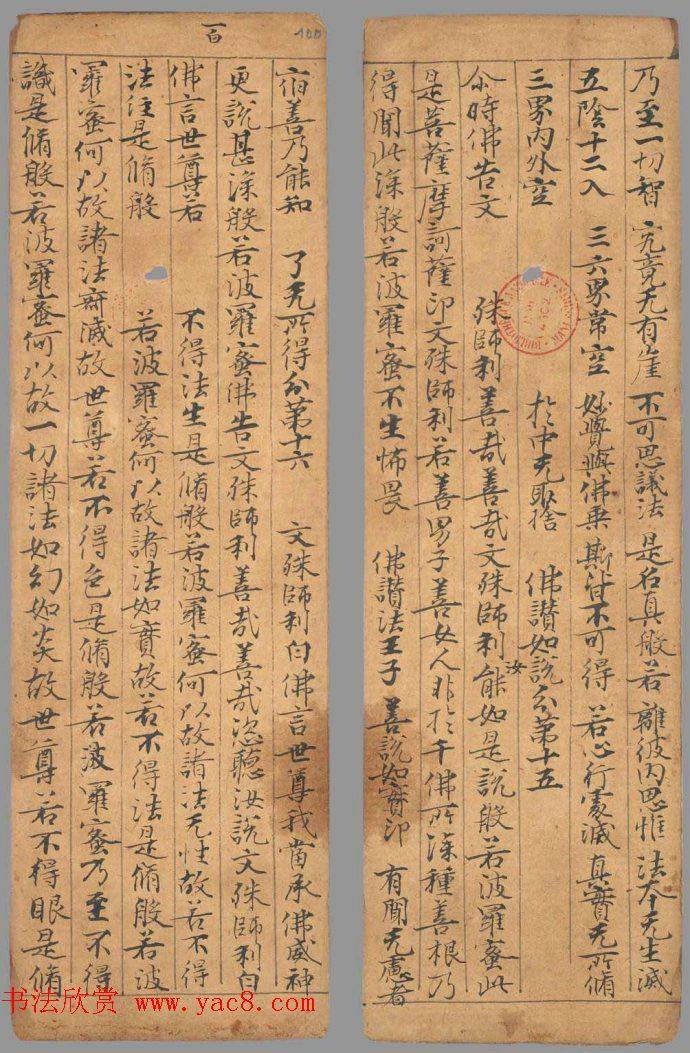 乃至一切智 究竟无有崖 不可思議法 是名真般若 離彼内思惟 法本无生滅
五陰十二入 三六界常空 妙覺與佛乗 斯皆不可得 若心行處滅 真實无所脩
三界内外空 於中无取捨 佛讃如説分第十五
尒時佛告文殊師利善哉善哉文殊師利汝能如是説般若波羅蜜此
是菩薩摩訶薩印文殊師利若善男子善女人非於千佛所深種善根乃
得聞此深般若波羅蜜不生怖畏 佛讃法王子 善説如實印 有聞无慮者
一百
100
宿善乃能知 了无所得分第十六 文殊師利白佛言世尊我當承佛威神
更説甚深般若波羅蜜佛告文殊師利善哉善哉恣聽汝説文殊師利白
佛言世尊若不得法生是脩般若波羅蜜何以故諸法无性故若不得
法住是脩般若波羅蜜何以故諸法如實故若不得法是脩般若波
羅蜜何以故諸法寂滅故世尊若不得色是脩般若波羅蜜乃至不得
識是脩般若波羅蜜何以故一切諸法如幻如炎故世尊若不得眼是脩
书法欣赏 www.yac8.com